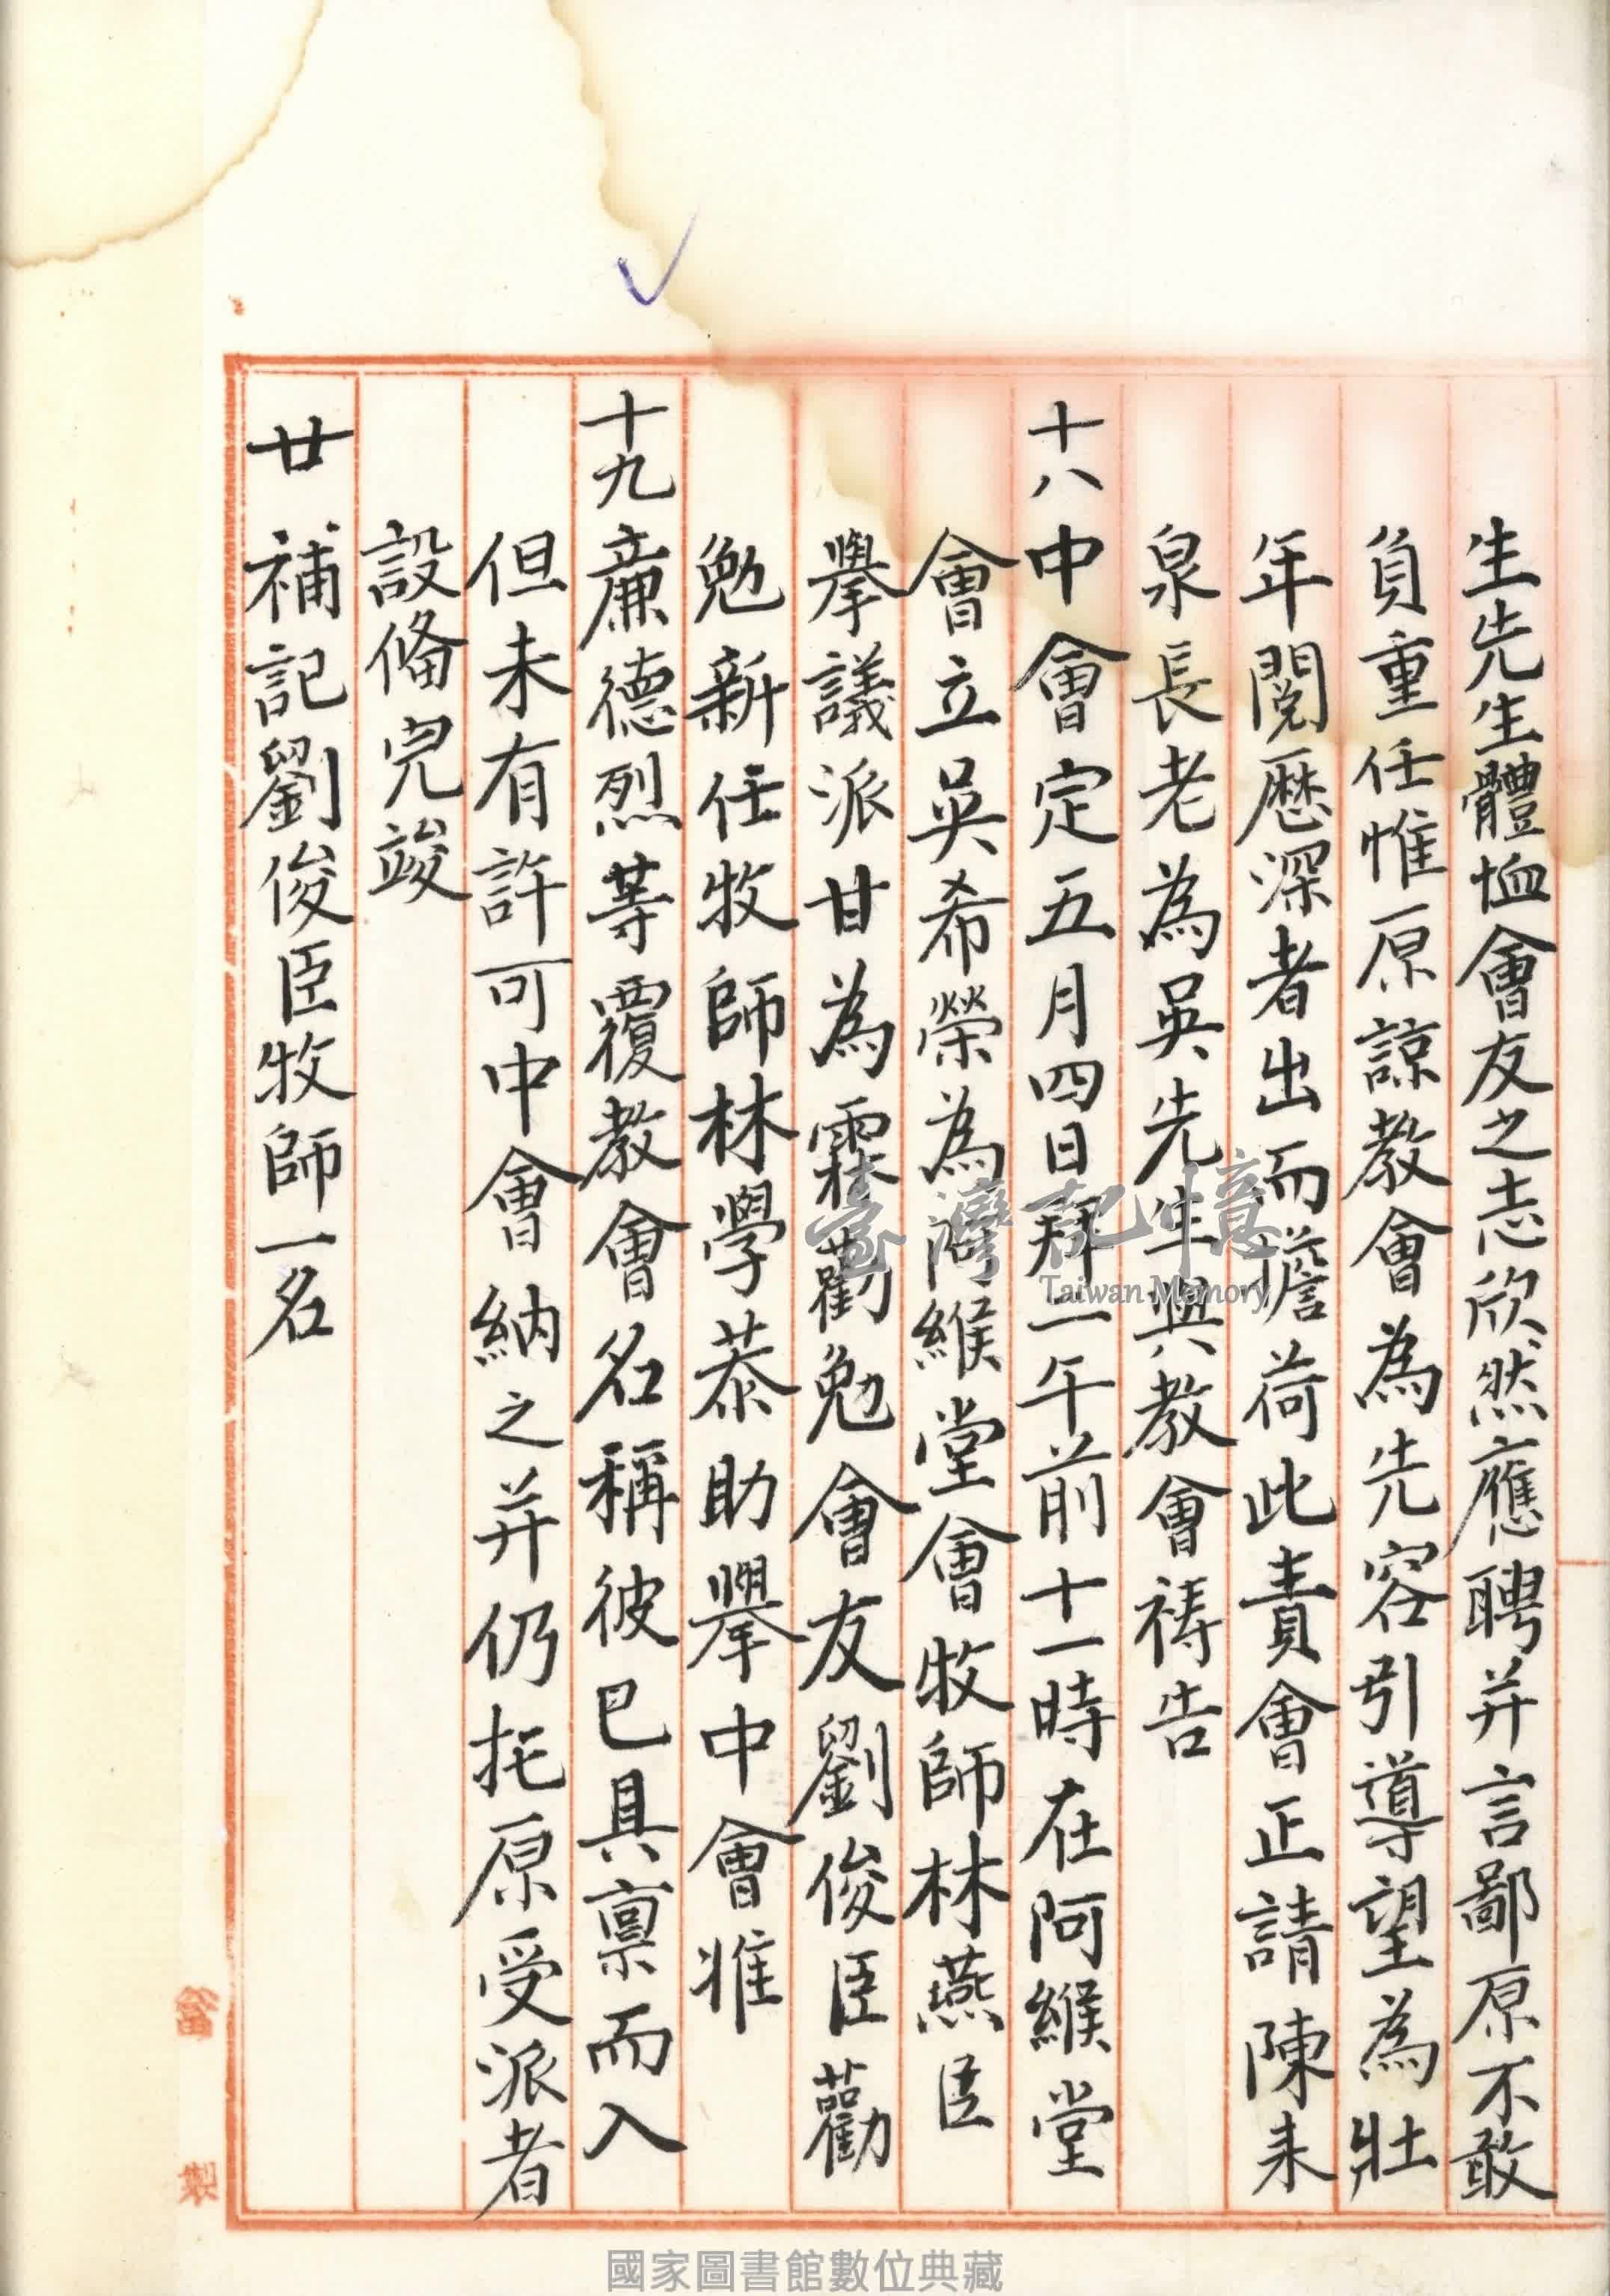 生先生體恤會友之志欣然應聘并言鄙原不敢
負重任惟原諒教會為先容引導望為壯
年閱歷深者出而擔荷此責會正請陳耒
泉長老為吳先生與教會禱告
十八中會定五月四日拜二午前十一時在阿緱堂
會立吳希榮為阿緱堂會牧師林燕臣
舉議派甘為霖勸勉會友劉俊臣勸
勉新任牧師林學恭助舉中會准
十九廉德烈等覆教會名稱彼已具稟而入
但未有許可中會納之并仍托原受派者
設俻完竣
廿補記劉俊臣牧師一名
製
臺灣記憶
Taiwan Memory
國家圖書館數位典藏